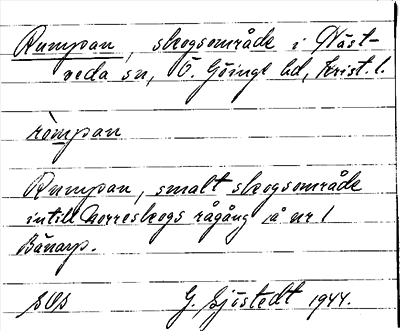 Rumpan, skogsområde i Näst-
veda sn, Ö. Göinge hd, Krist. l.
rómpan
Rumpan, smalt skogsområde
intill Norreskogs rågång å nr 1
Bånarp.
G. Sjöstedt 1944.